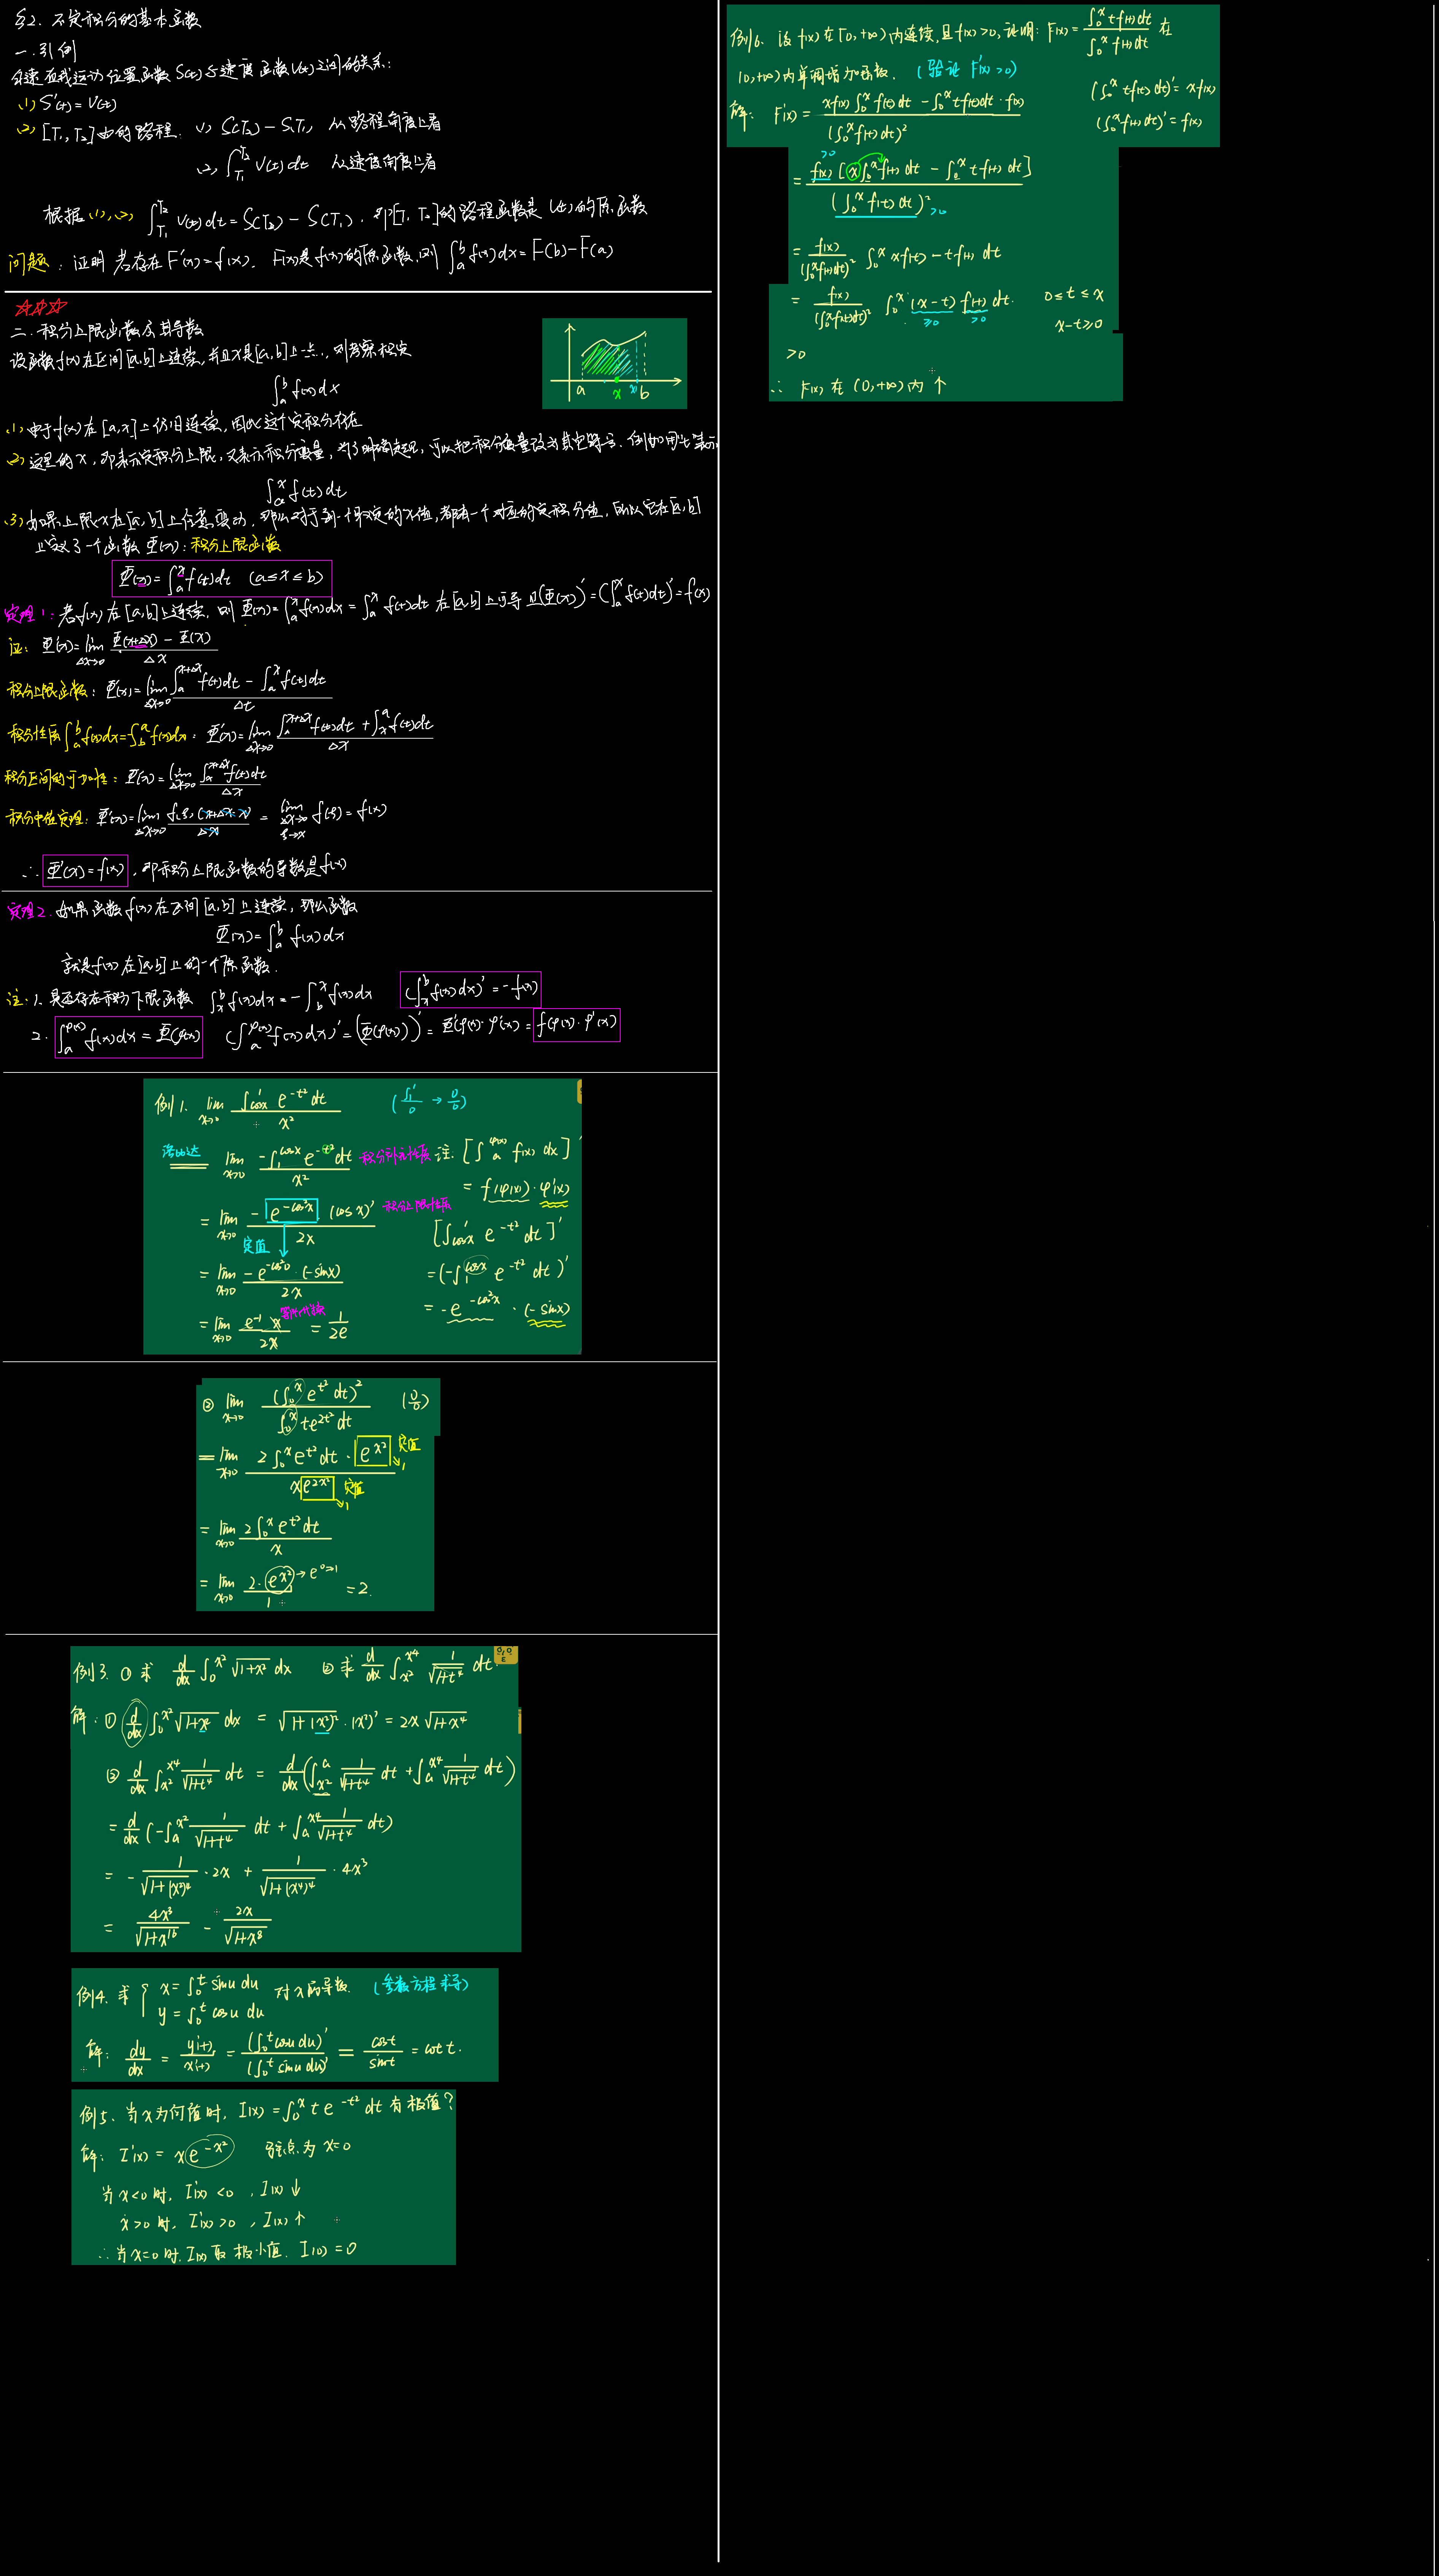 §2. 不定积分的基本函数
一. 引例
变速直线运动位置函数 S(t) 与速度函数 V(t) 之间的关系:
(1) S'(t) = V(t)
(2) [T₁, T₂] 内的路程. (1) S(T₂) - S(T₁) 从路程角度上看
(2) ∫_{T₁}^{T₂} V(t) dt 从速度角度上看
根据 (1), (2) ∫_{T₁}^{T₂} V(t) dt = S(T₂) - S(T₁). 即 [T₁, T₂] 的路程函数是 V(t) 的原函数
问题: 证明 若存在 F'(x) = f(x). F(x) 是 f(x) 的原函数, 则 ∫_a^b f(x) dx = F(b) - F(a)
☆☆☆
二. 积分上限函数及其导数
设函数 f(x) 在区间 [a, b] 上连续, 并且 x 是 [a, b] 上一点, 则考察积分
∫_a^b f(x) dx
a x x b
(1) 由于 f(x) 在 [a, x] 上仍旧连续, 因此这个定积分存在
(2) 这里的 x, 即表示定积分上限, 又表示积分变量, 为了明确起见, 可以把积分变量改为其它符号. 例如用 t 表示
∫_a^x f(t) dt
(3) 如果上限 x 在 [a, b] 上任意变动, 那么对于每一个取定的 x 值, 都有一个对应的定积分值, 所以它在 [a, b]
上定义了一个函数 Φ(x): 积分上限函数
Φ(x) = ∫_a^x f(t) dt (a ≤ x ≤ b)
定理1: 若 f(x) 在 [a, b] 上连续, 则 Φ(x) = ∫_a^x f(x) dx = ∫_a^x f(t) dt 在 [a, b] 上可导 且 (Φ(x))' = (∫_a^x f(t) dt)' = f(x)
证: Φ'(x) = lim_{Δx→0} (Φ(x+Δx) - Φ(x)) / Δx
积分上限函数: Φ'(x) = lim_{Δx→0} (∫_a^{x+Δx} f(t) dt - ∫_a^x f(t) dt) / Δt
积分性质 ∫_a^b f(x) dx = -∫_b^a f(x) dx: Φ'(x) = lim_{Δx→0} (∫_a^{x+Δx} f(t) dt + ∫_x^a f(t) dt) / Δx
积分区间的可加性: Φ'(x) = lim_{Δx→0} (∫_x^{x+Δx} f(t) dt) / Δx
积分中值定理: Φ'(x) = lim_{Δx→0} f(ξ)·(x+Δx-x) / Δx = lim_{Δx→0, ξ→x} f(ξ) = f(x)
∴ Φ'(x) = f(x), 即积分上限函数的导数是 f(x)
定理2. 如果函数 f(x) 在区间 [a, b] 上连续, 那么函数
Φ(x) = ∫_a^b f(x) dx
就是 f(x) 在 [a, b] 上的一个原函数.
注: 1. 是否存在积分下限函数 ∫_x^b f(x) dx = -∫_b^x f(x) dx (∫_x^b f(x) dx)' = -f(x)
2. ∫_a^{φ(x)} f(x) dx = Φ(φ(x)) (∫_a^{φ(x)} f(x) dx)' = (Φ(φ(x)))' = Φ'(φ(x))·φ'(x) = f(φ(x))·φ'(x)
例1. lim_{x→0} (∫_{cosx}^1 e^{-t²} dt) / x² (∫_1^1 / 0 → 0/0)
洛必达 lim_{x→0} (-∫_1^{cosx} e^{-t²} dt) / x² 积分补充性质 注: [∫_a^{φ(x)} f(x) dx]'
= f(φ(x))·φ'(x)
= lim_{x→0} (-e^{-cos²x}·(cosx)') / 2x 积分上限性质 [∫_{cosx}^1 e^{-t²} dt]'
定值
= lim_{x→0} (-e^{-cos²0}·(-sinx)) / 2x = (-∫_1^{cosx} e^{-t²} dt)'
= -e^{-cos²x}·(-sinx)
= lim_{x→0} (e^{-1} x) / 2x 等价代换 = 1/2e
② lim_{x→0} (∫_0^x e^{t²} dt)² / ∫_0^x t e^{2t²} dt (0/0)
= lim_{x→0} (2∫_0^x e^{t²} dt · e^{x²}) / (x e^{2x²}) 定值 →1 定值 →1
= lim_{x→0} (2∫_0^x e^{t²} dt) / x
= lim_{x→0} (2·e^{x²}) / 1 → e⁰=1 = 2.
例3. ① 求 d/dx ∫_0^{x²} √(1+x²) dx ② 求 d/dx ∫_{x²}^{x⁴} 1/√(1+t⁴) dt.
解: ① d/dx ∫_0^{x²} √(1+x²) dx = √(1+(x²)²)·(x²)' = 2x √(1+x⁴)
② d/dx ∫_{x²}^{x⁴} 1/√(1+t⁴) dt = d/dx (∫_{x²}^a 1/√(1+t⁴) dt + ∫_a^{x⁴} 1/√(1+t⁴) dt)
= d/dx (-∫_a^{x²} 1/√(1+t⁴) dt + ∫_a^{x⁴} 1/√(1+t⁴) dt)
= -1/√(1+(x²)⁴) · 2x + 1/√(1+(x⁴)⁴) · 4x³
= 4x³/√(1+x¹⁶) - 2x/√(1+x⁸)
例4. 求 { x = ∫_0^t sinu du 对 x 的导数. (参数方程求导)
y = ∫_0^t cosu du
解: dy/dx = y'(t)/x'(t) = (∫_0^t cosu du)' / (∫_0^t sinu du)' = cost/sint = cot t.
例5. 当 x 为何值时, I(x) = ∫_0^x t e^{-t²} dt 有极值?
解: I'(x) = x e^{-x²} 驻点为 x=0
当 x<0 时, I'(x) <0, I(x) ↓
x>0 时, I'(x) >0, I(x) ↑
∴ 当 x=0 时. I(x) 取极小值. I(0) = 0
例6. 设 f(x) 在 [0, +∞) 内连续, 且 f(x) >0, 证明: F(x) = ∫_0^x t f(t) dt / ∫_0^x f(t) dt 在
(0, +∞) 内单调增加函数. (验证 F'(x) >0) (∫_0^x t f(t) dt)' = x f(x)
解: F'(x) = (x f(x) ∫_0^x f(t) dt - ∫_0^x t f(t) dt · f(x)) / (∫_0^x f(t) dt)² (∫_0^x f(t) dt)' = f(x)
= f(x) [x ∫_0^x f(t) dt - ∫_0^x t f(t) dt] / (∫_0^x f(t) dt)² >0 >0
= f(x) / (∫_0^x f(t) dt)² ∫_0^x x f(t) - t f(t) dt
= f(x) / (∫_0^x f(t) dt)² ∫_0^x (x-t) f(t) dt. 0 ≤ t ≤ x
≥0 >0 x-t ≥ 0
>0
∴ F(x) 在 (0, +∞) 内 ↑